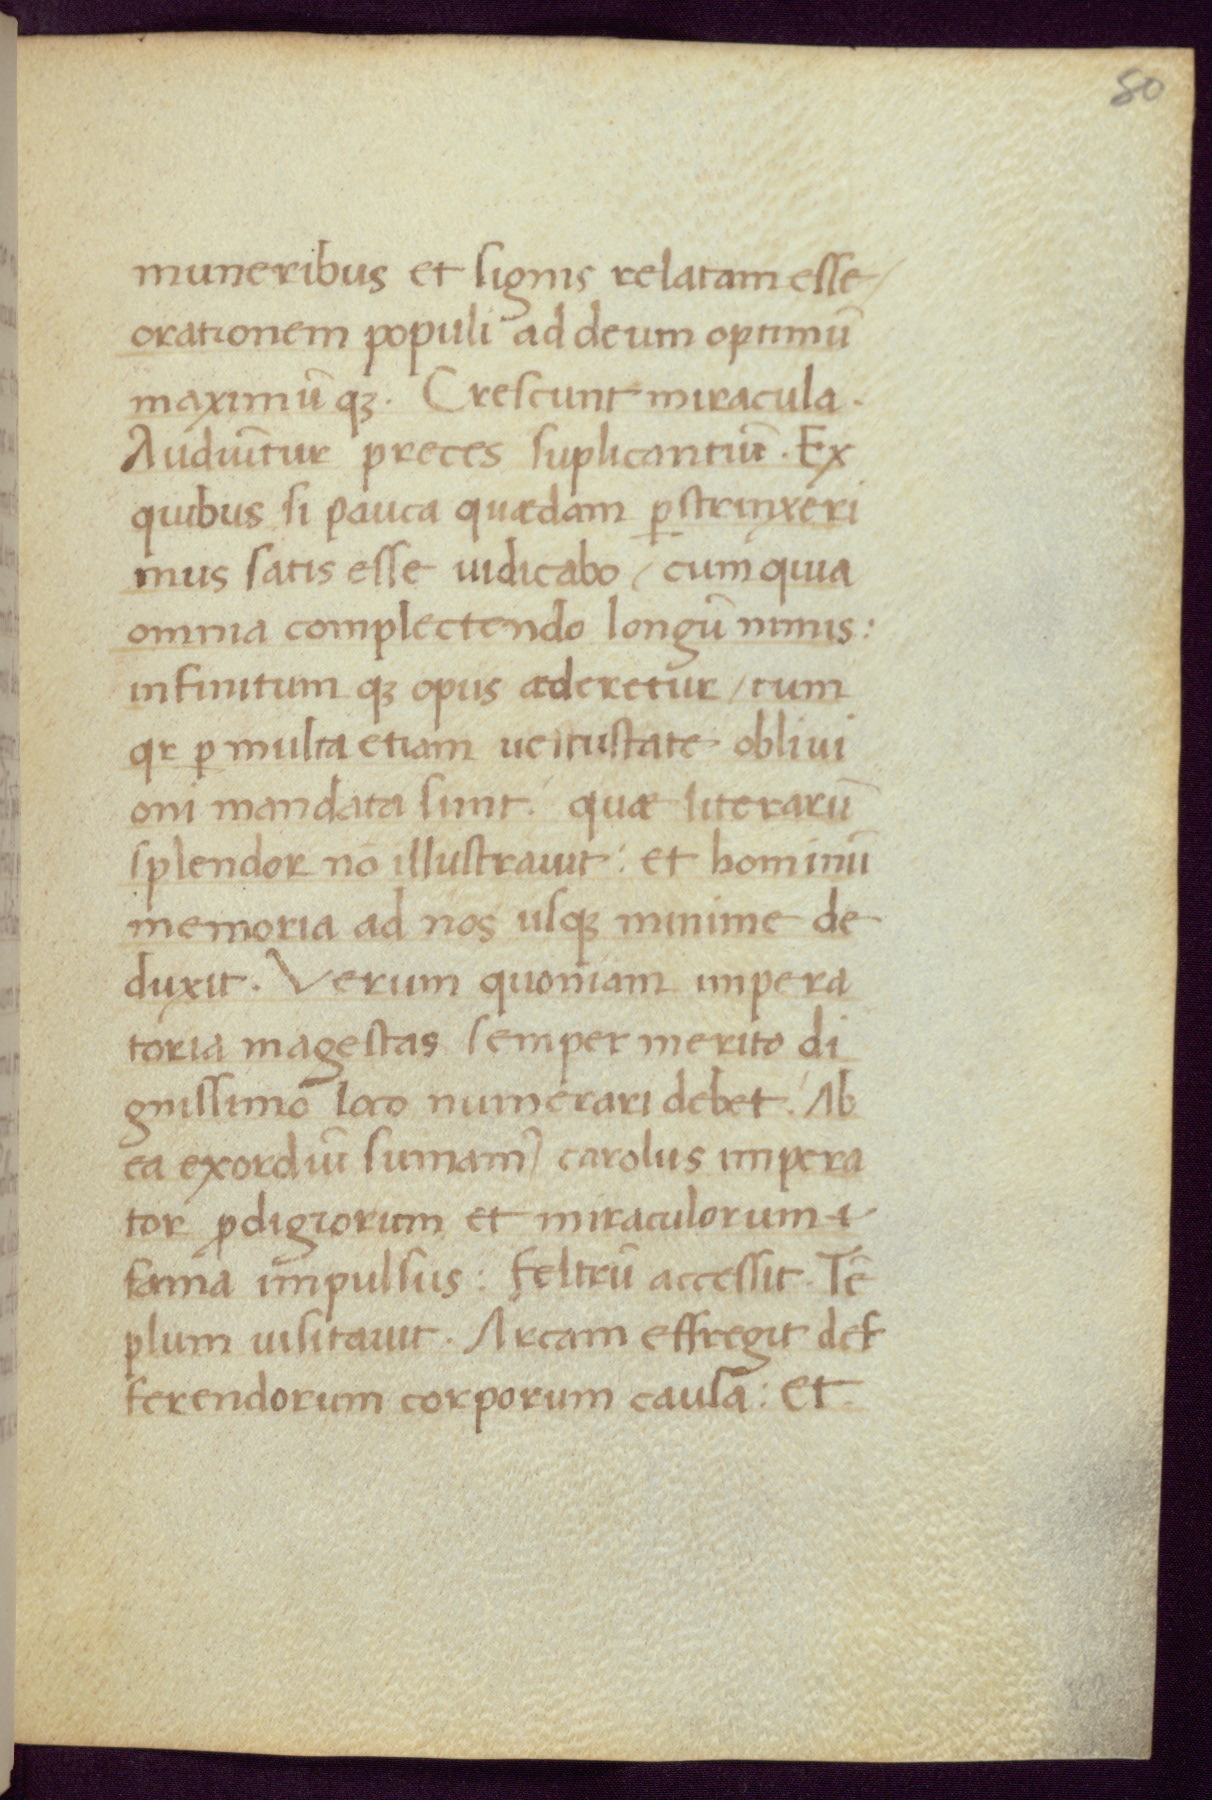 80
muneribus et signis relatam esse/
orationem populi ad deum optimū
maximū qꝫ. Crescunt miracula.
Audiūtur preces suplicantiū. Ex
quibus si pauca quædam ꝑstrinxeri
mus satis esse uidicabo / cum quia
omnia complectendo longū nimis:
infinitum qꝫ opus æderetur / tum
qr ꝑ multa etiam uetustate oblivi
oni mandata sunt: quæ literarū
splendor nō illustrauit: et hominū
memoria ad nos usqꝫ minime de
duxit. Verum quoniam impera
toria magestas semper merito di
gnissimo loco numerari debet. Ab
ea exordiū sumam) carolus impera
tor ꝓdigiorum et miraculorum
fama impulsus: feltrū accessit. Tē
plum uisitauit. Arcam effregit def
ferendorum corporum causa: et